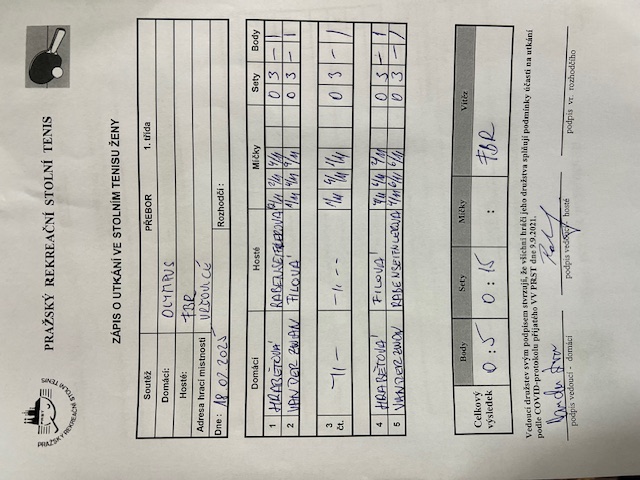 PRAŽSKÝ REKREAČNÍ STOLNÍ TENIS
PRAŽSKÝ REKREAČNÍ STOLNÍ TENIS
PRST
ZÁPIS O UTKÁNÍ VE STOLNÍM TENISU ŽENY
Soutěž PŘEBOR 1. třída
Domácí: OLYMPUS
Hosté: FBR
Adresa hrací místnosti VRŠOVICE
Dne: 18 02 2025 Rozhodčí:
Domácí Hosté Míčky Sety Body
1 HRABĚTOVÁ 0 3 - 1
2 VAN DER ZWAN FILOVÁ 0 3 - 1
3 čt. -"- -"- 0 3 - 1
4 HRABĚTOVÁ FILOVÁ 0 3 - 1
5 0 3 - 1
Celkový výsledek Body Sety Míčky Vítěz
0 : 5 0 : 15 : FBR
Vedoucí družstev svým podpisem stvrzují, že všichni hráči jeho družstva splňují podmínky účasti na utkání
podle COVID-protokolu přijatého VV PRST dne 9.9.2021.
podpis vedoucí - domácí podpis vedoucí - hosté podpis vr. rozhodčího